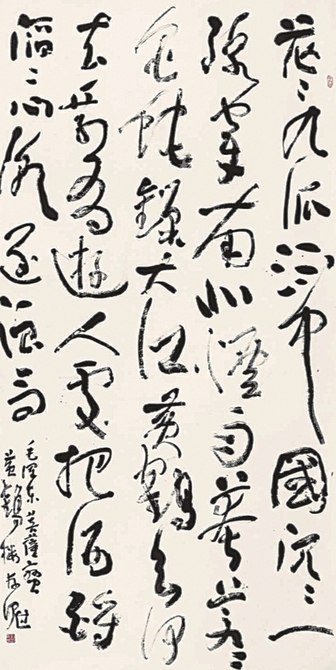 茫々九派流中國沉々一
線穿南北煙雨莽蒼々
龜蛇鎖大江黃鶴知何
去剩有遊人處把酒酹
滔々心潮逐浪高
毛澤東菩薩蠻
黃鶴樓